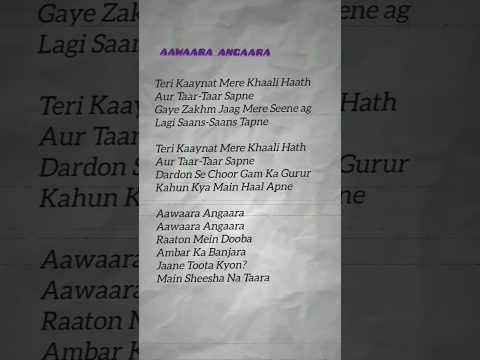 AAWAARA ANGAARA
Teri Kaaynat Mere Khaali Haath
Aur Taar-Taar Sapne
Gaye Zakhm Jaag Mere Seene ag
Lagi Saans-Saans Tapne
Teri Kaaynat Mere Khaali Hath
Aur Taar-Taar Sapne
Dardon Se Choor Gam Ka Gurur
Kahun Kya Main Haal Apne
Aawaara Angaara
Aawaara Angaara
Raaton Mein Dooba
Ambar Ka Banjara
Jaane Toota Kyon?
Main Sheesha Na Taara